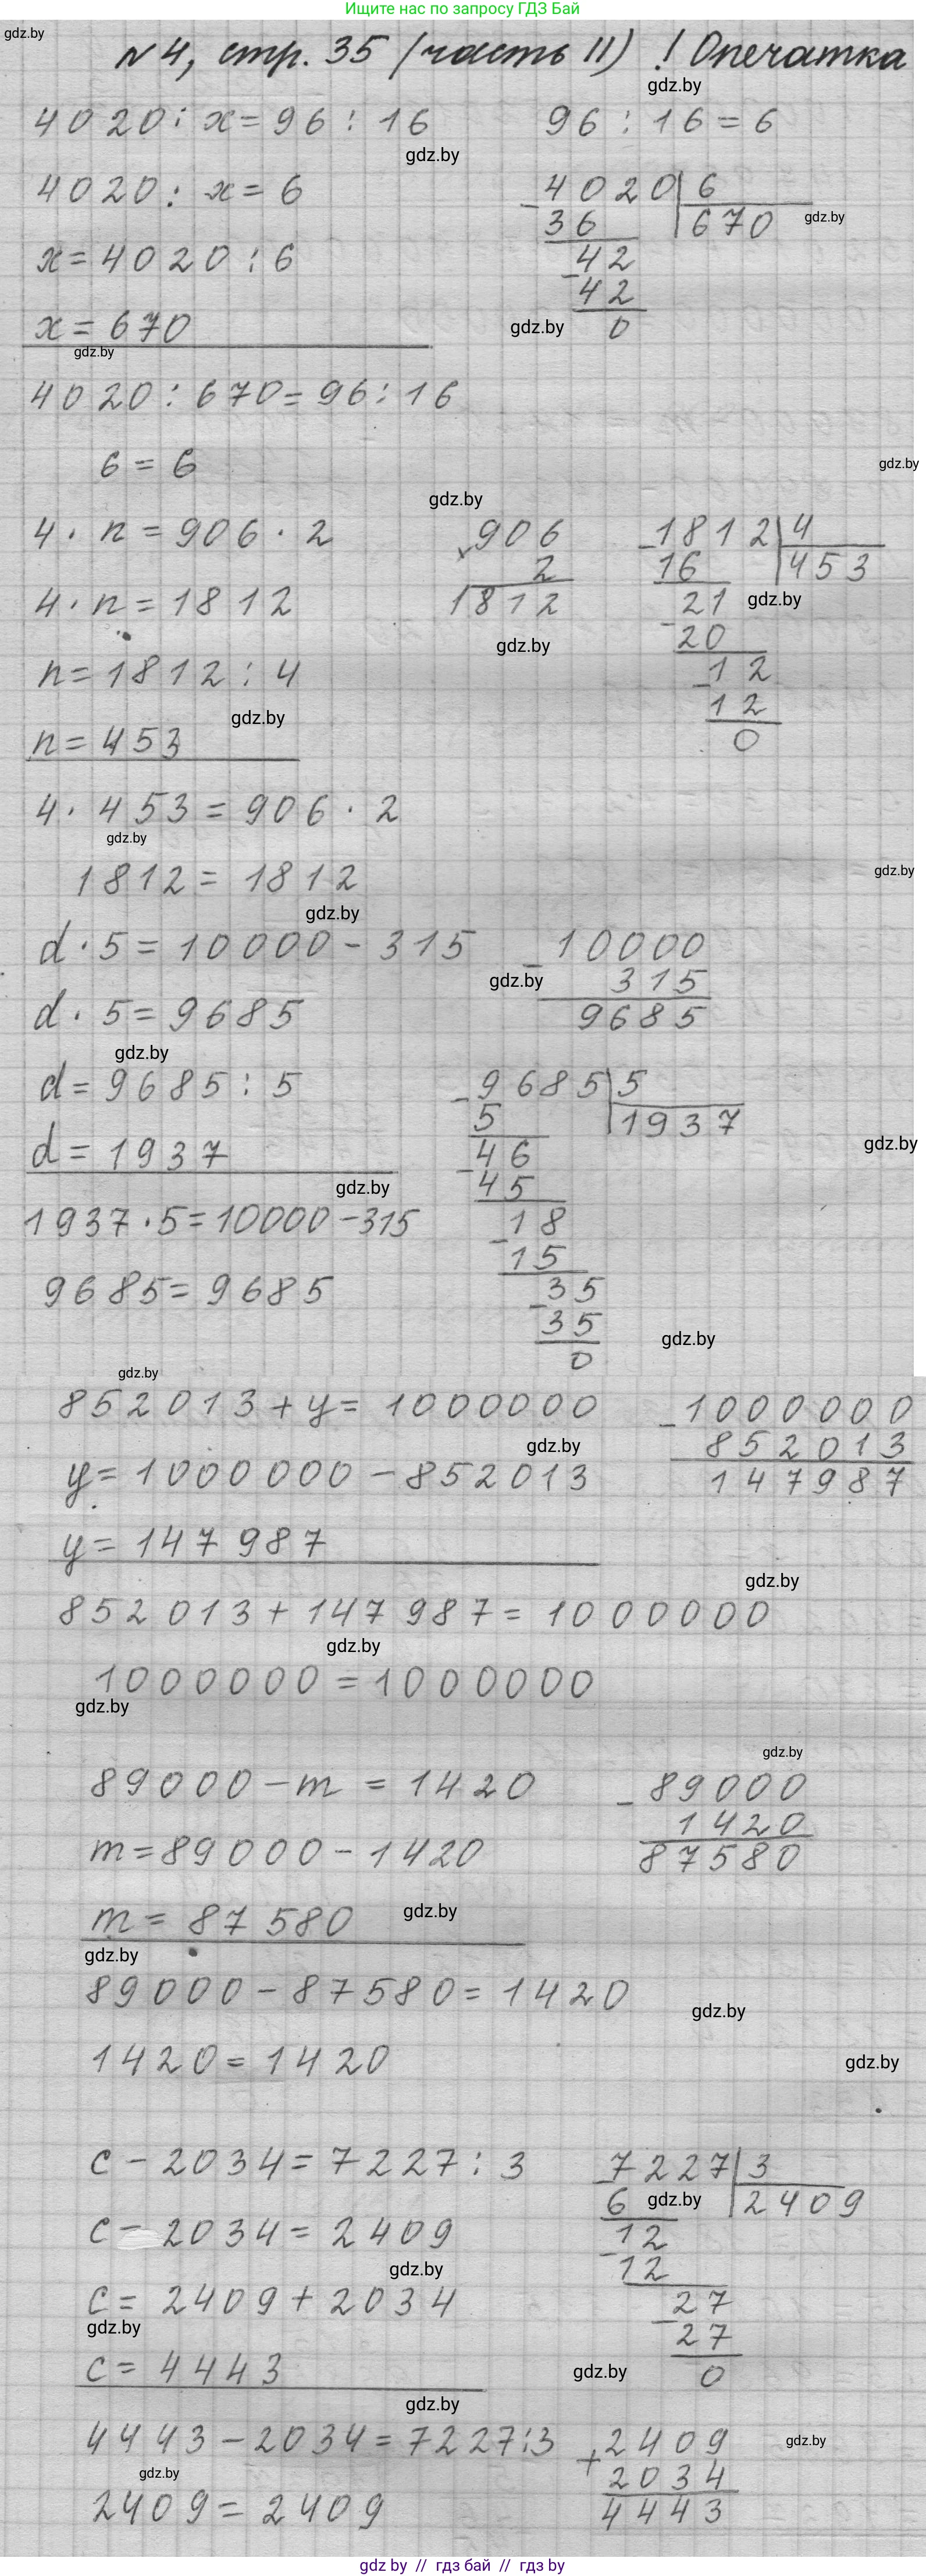 Ищите нас по запросу ГДЗ Бай
gdz.by
№4, стр. 35 (часть II) ! Опечатка
gdz.by
4020 : x = 96 : 16
96 : 16 = 6
gdz.by
4020 : x = 6
- 4020 | 6
36
670
gdz.by
x = 4020 : 6
- 42
42
x = 670
gdz.by
0
gdz.by
4020 : 670 = 96 : 16
6 = 6
gdz.by
gdz.by
4 · n = 906 · 2
× 906
- 1812 | 4
2
16
453
4 · n = 1812
1812
- 21
gdz.by
gdz.by
20
n = 1812 : 4
- 12
12
gdz.by
n = 453
0
4 · 453 = 906 · 2
gdz.by
1812 = 1812
gdz.by
gdz.by
d · 5 = 10000 - 315
- 10000
gdz.by
315
d · 5 = 9685
9685
gdz.by
d = 9685 : 5
- 9685 | 5
5
1937
gdz.by
d = 1937
- 46
45
gdz.by
1937 · 5 = 10000 - 315
- 18
15
9685 = 9685
- 35
35
gdz.by
0
gdz.by
852013 + y = 1000000
- 1000000
gdz.by
852013
y = 1000000 - 852013
147987
y = 147987
gdz.by
852013 + 147987 = 1000000
gdz.by
1000000 = 1000000
gdz.by
gdz.by
89000 - m = 1420
- 89000
1420
m = 89000 - 1420
87580
m = 87580
gdz.by
gdz.by
89000 - 87580 = 1420
gdz.by
1420 = 1420
gdz.by
c - 2034 = 7227 : 3
- 7227 | 3
6
gdz.by
2409
c - 2034 = 2409
- 12
12
gdz.by
c = 2409 + 2034
- 27
gdz.by
27
c = 4443
gdz.by
0
gdz.by
4443 - 2034 = 7227 : 3
+ 2409
gdz.by
gdz.by
2034
2409 = 2409
4443
gdz by // гдз бай // gdz by